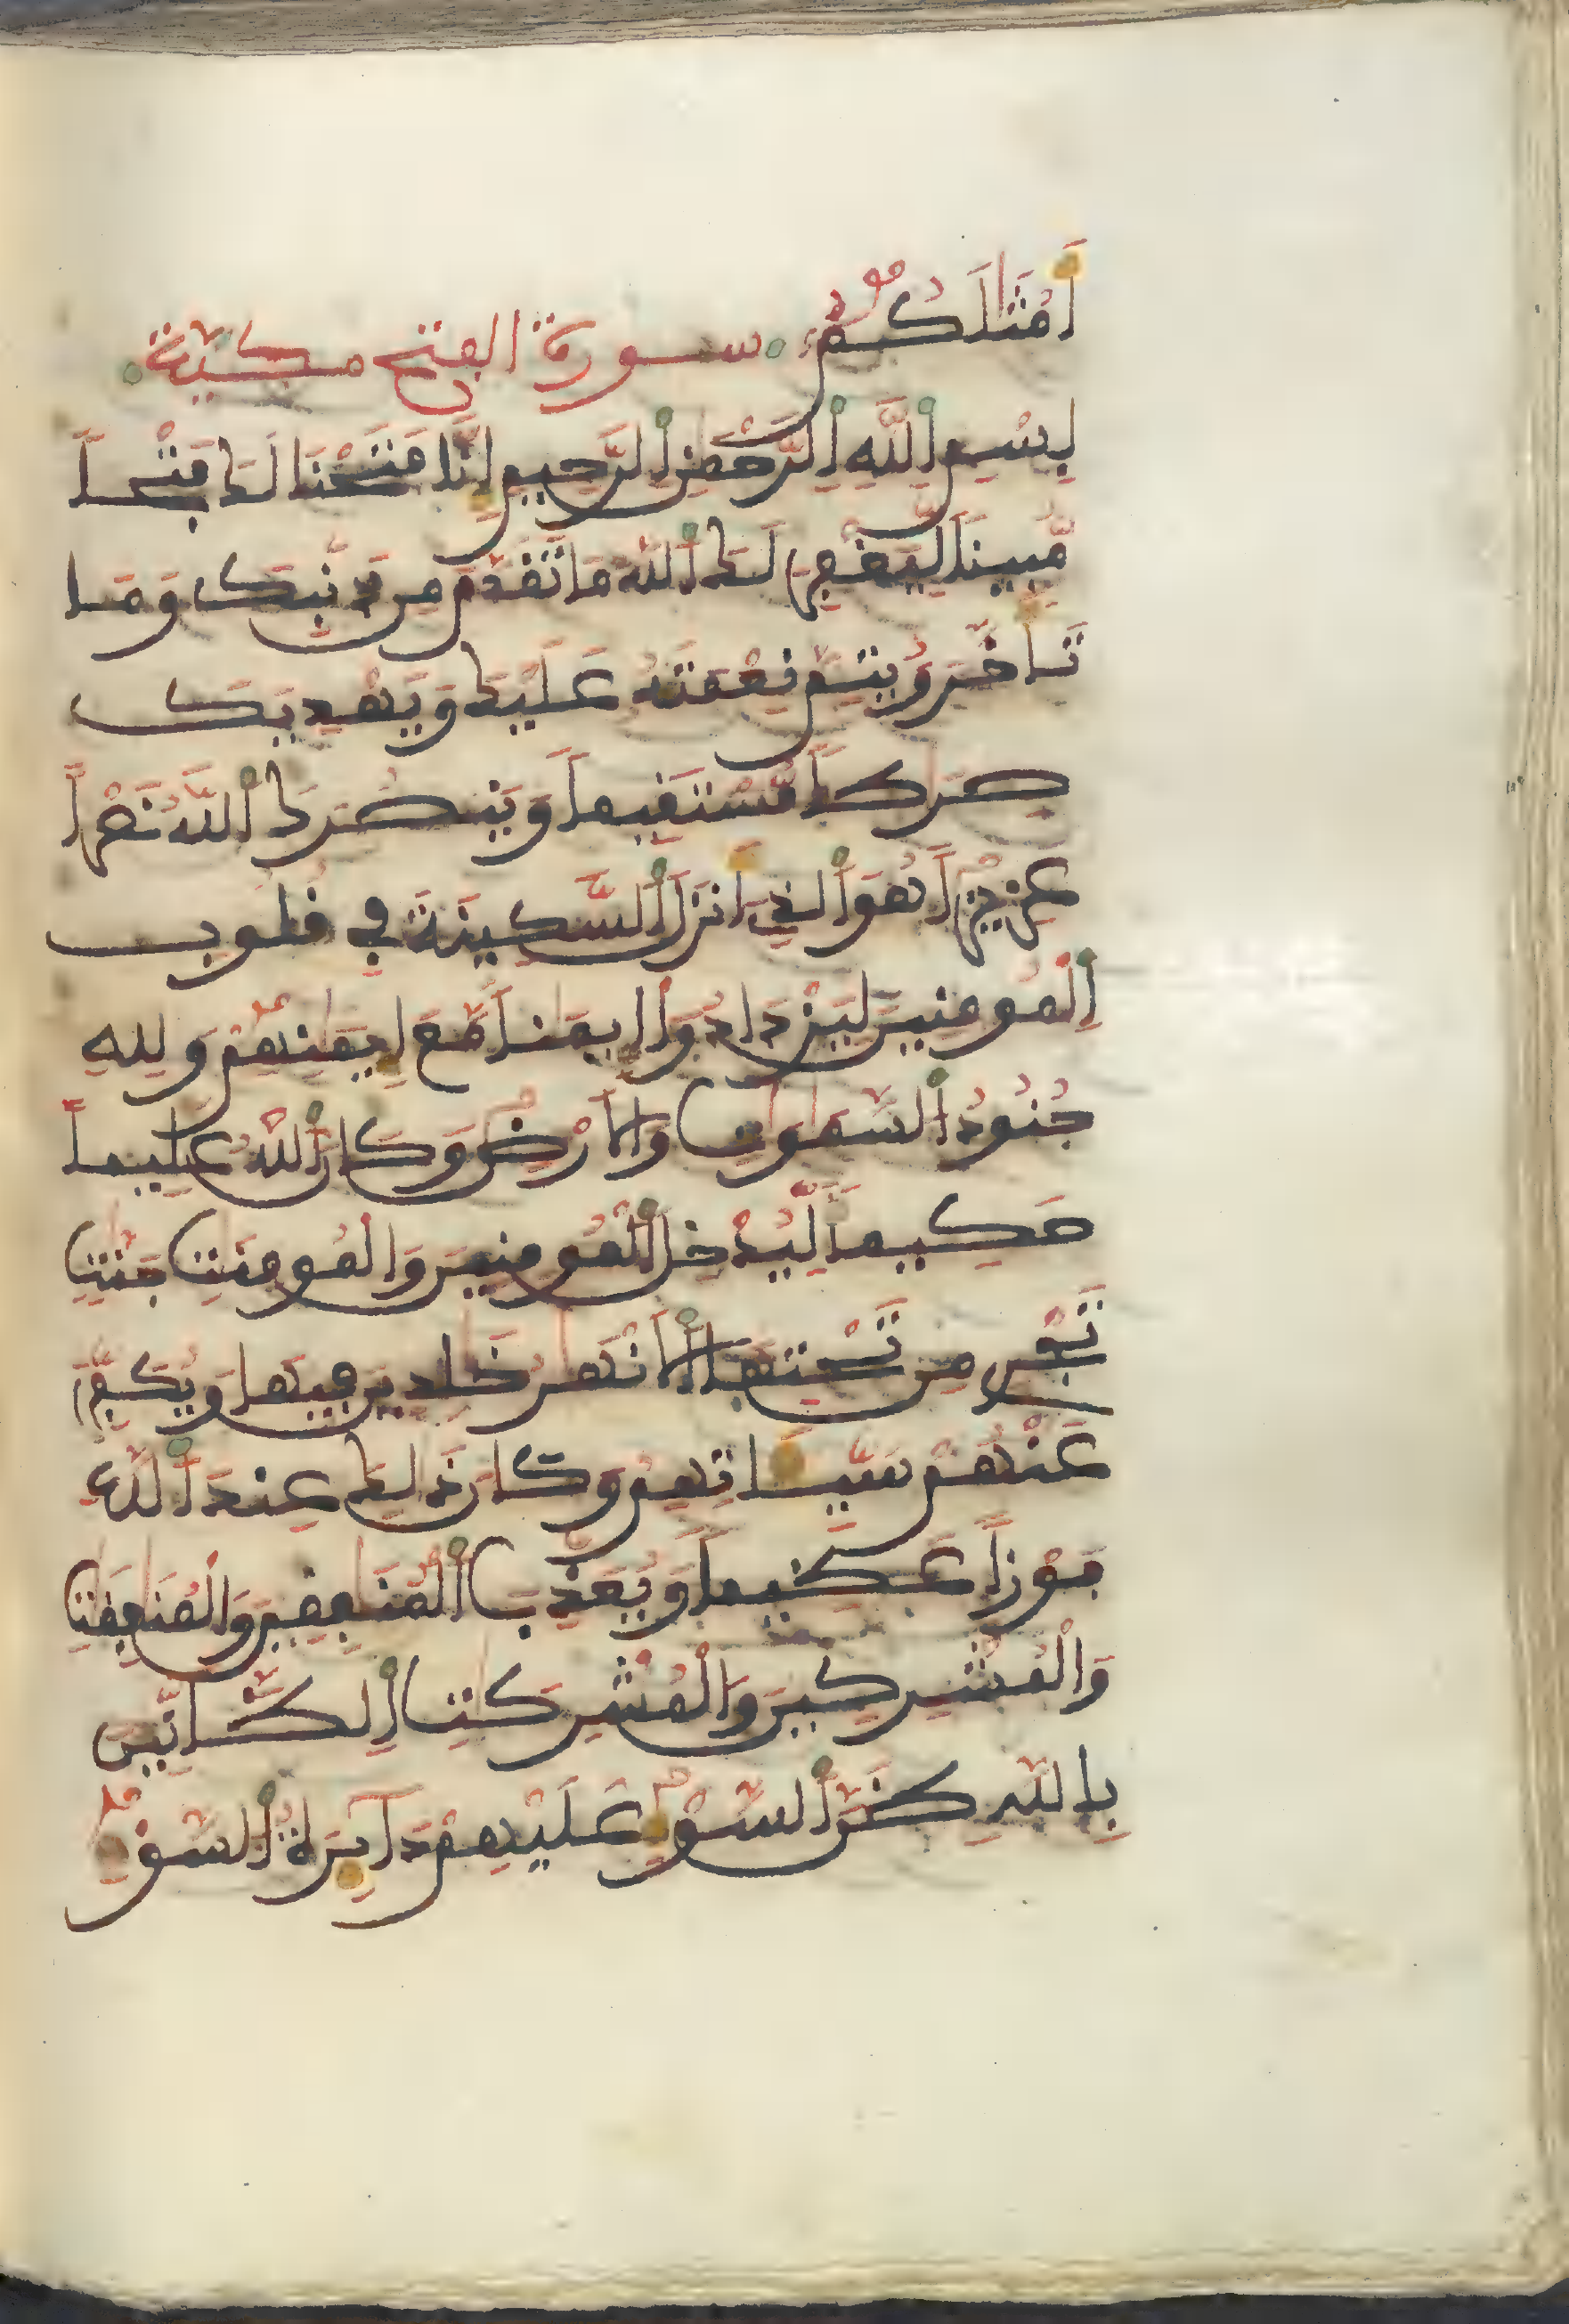 أَمْثَٰلَكُمْ سورة الفتح مكية
بِسْمِ اللَّهِ الرَّحْمَٰنِ الرَّحِيمِ إِنَّا فَتَحْنَا لَكَ فَتْحاً
مُّبِيناً لِّيَغْفِرَ لَكَ اللَّهُ مَا تَقَدَّمَ مِن ذَنۢبِكَ وَمَا
تَأَخَّرَ وَيُتِمَّ نِعْمَتَهُ عَلَيْكَ وَيَهْدِيَكَ
صِرَٰطاً مُّسْتَقِيماً وَيَنصُرَكَ اللَّهُ نَصْراً
عَزِيزاً هُوَ الَّذِي أَنزَلَ السَّكِينَةَ فِي قُلُوبِ
الْمُومِنِينَ لِيَزْدَادُوا إِيمَٰناً مَّعَ إِيمَٰنِهِمْ وَلِلهِ
جُنُودُ السَّمَٰوَٰتِ وَالأَرْضِ وَكَانَ اللَّهُ عَلِيماً
حَكِيماً لِّيُدْخِلَ الْمُومِنِينَ وَالْمُومِنَٰتِ جَنَّٰتٍ
تَجْرِي مِن تَحْتِهَا الأَنْهَٰرُ خَٰلِدِينَ فِيهَا وَيُكَفِّرَ
عَنْهُمْ سَيِّـَٔاتِهِمْ وَكَانَ ذَٰلِكَ عِندَ اللَّهِ
فَوْزاً عَظِيماً وَيُعَذِّبَ الْمُنَٰفِقِينَ وَالْمُنَٰفِقَٰتِ
وَالْمُشْرِكِينَ وَالْمُشْرِكَٰتِ الظَّانِّينَ
بِاللَّهِ ظَنَّ السَّوْءِ عَلَيْهِمْ دَآئِرَةُ السَّوْءِ